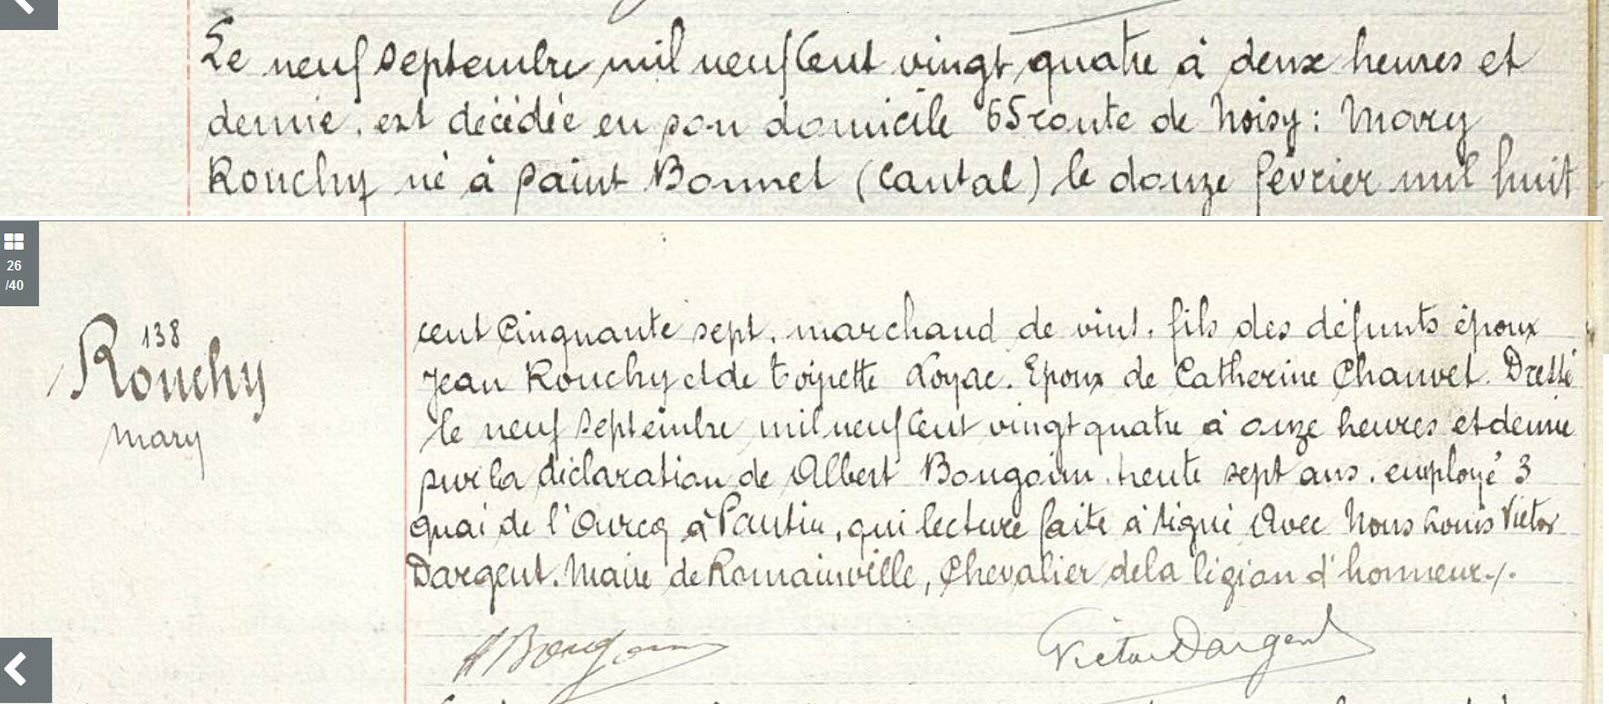 Le neuf Septembre mil neuf Cent vingt quatre à deux heures et
demie, est décédée en son domicile 65 route de Noisy : Mary
Rouchy né à Saint Bonnet (Cantal) le douze février mil huit
26
/40
138
Rouchy
Mary
cent Cinquante sept, marchand de vins, fils des défunts époux
Jean Rouchy et de Toinette Loyac. Epoux de Catherine Chauvet. Dressé
le neuf Septembre mil neuf Cent vingt quatre à onze heures et demie
sur la déclaration de Albert Bougoin, trente sept ans, employé 3
quai de l'Ourcq à Pantin, qui lecture faite à signé Avec Nous Louis Victor
Dargent, Maire de Romainville, Chevalier de la légion d'honneur ./.
A Bougoin
Victor Dargent